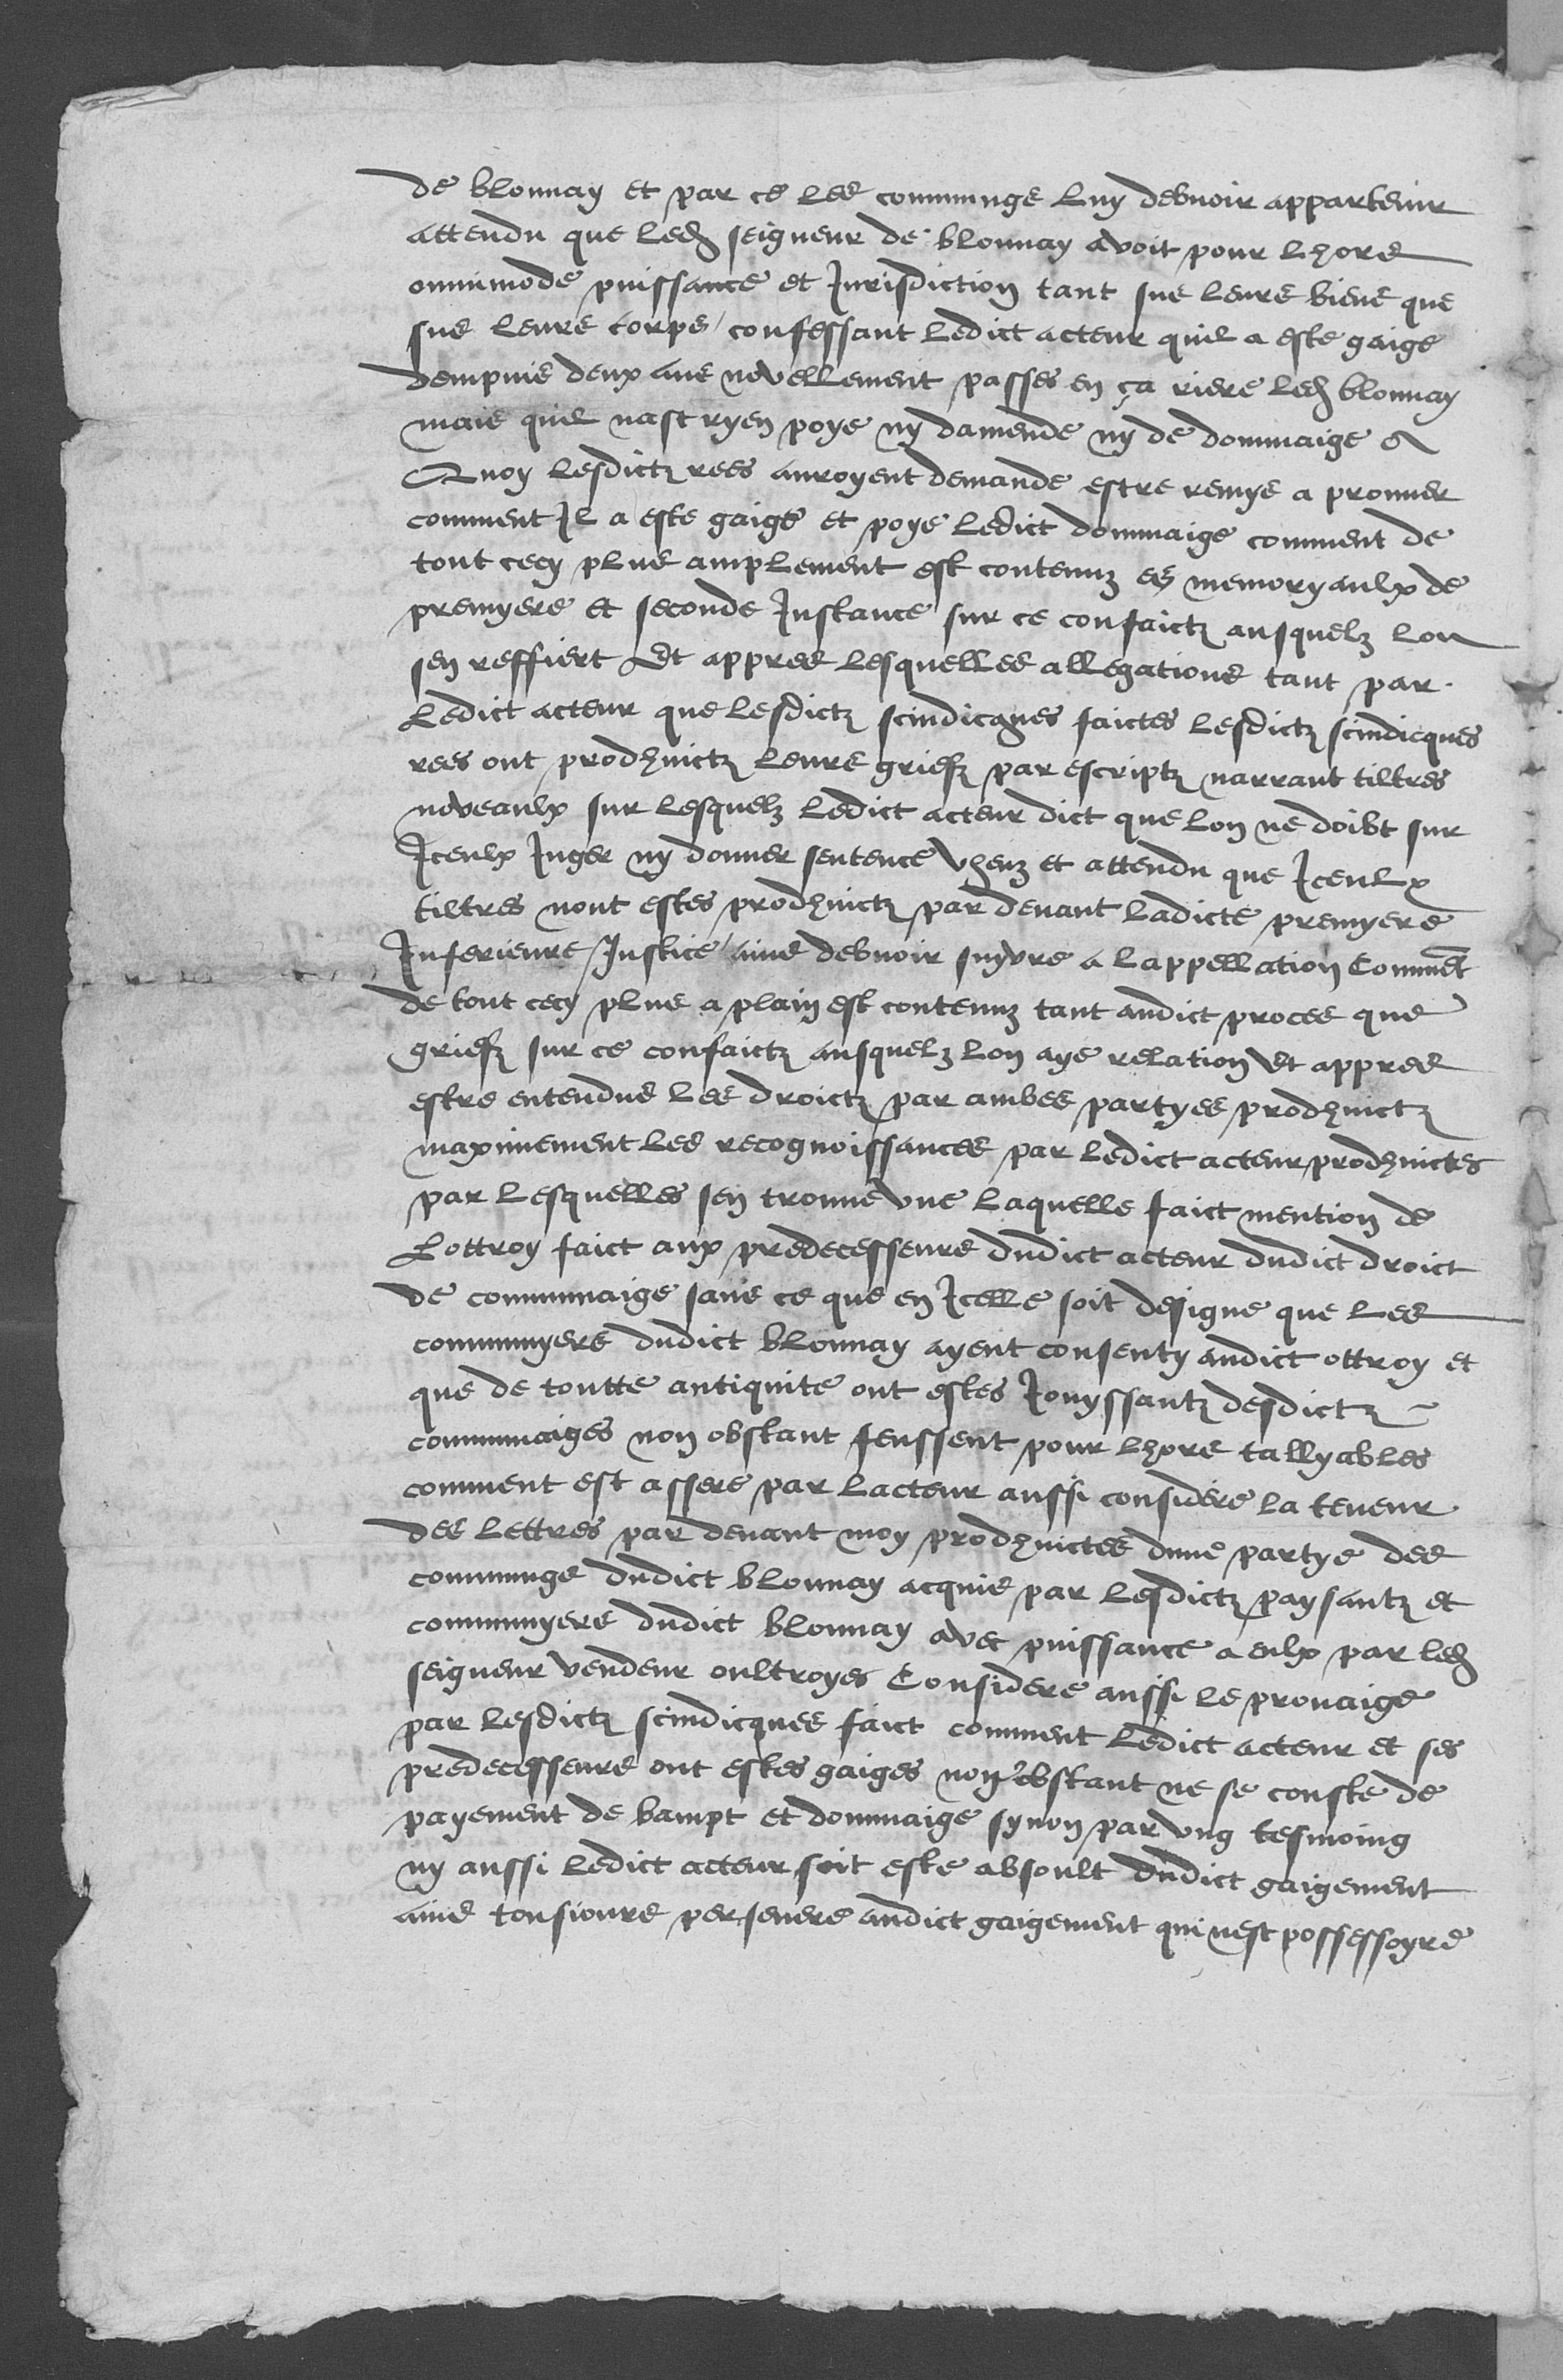 de blonnay et par ce les communge luy debuoir appartenir
attendu que led seigneur de blonnay avoit pour lhors
omnimode puissance et Jurisdiction tant sus leurs biens que
sus leurs corps / confessant ledict acteur quil a este gaige
dempuis deux ans novellement passes en ça riere led blonnay
mais quil nast ryen poye ny damende ny de dommaige A
Quoy lesdictz rees auroyent demande estre remys a prouuer
comment Jl a este gaige et poye ledict dommaige comment de
tout cecy plus amplement est contenuz es memoryaulx de
premyere et seconde Jnstance sur ce confaictz ausquelz lon
sen reffiert Et appres lesquelles allegations tant par
Ledict acteur que lesdictz scindicques faictes lesdictz scindicques
rees ont prodhuictz leurs griefz par escriptz narrant tiltres
noveaulx sur lesquelz ledict acteur dict que lon ne doibt sur
Jceulx Juger ny donner sentence vheuz et attendu que Jceulx
tiltres nont estes prodhuictz par deuant ladicte premyere
Jnferieure Justice / ains debuoir suyvre a lappellation Comment
de tout cecy plus a plain est contenuz tant audict proces que
griefz sur ce confaictz ausquelz lon aye relation Et appres
estre entendus les droictz par ambes partyes prodhuictz
maximement les recognoissances par ledict acteur prodhuictes
par lesquelles sen trouue vne laquelle faict mention de
Lottroy faict aux predecesseurs dudict acteur dudict droict
de communaige sans ce que en Jcelle soit designe que les
communyers dudict blonnay ayent consenty audict ottroy et
que de toutte antiquite ont estes Jouyssantz desdictz
communaiges non obstant feussent pour lhors tallyables
comment est assere par lacteur aussi considere la teneur
des lettres par deuant moy prodhuictes dune partye des
communge dudict blonnay acquis par lesdictz paysantz et
communyers dudict blonnay avec puissance a eulx par led
seigneur vendeur oultroyes Considere aussi le prouaige
par lesdictz scindicques faict comment ledict acteur et ses
predecesseurs ont estes gaiges non obstant ne se conste de
payement de bampt et dommaige synon par vng tesmoing
ny aussi ledict acteur soit este absoult dudict gaigement
ains tousiours perseuere audict gaigement qui nest possessoyre